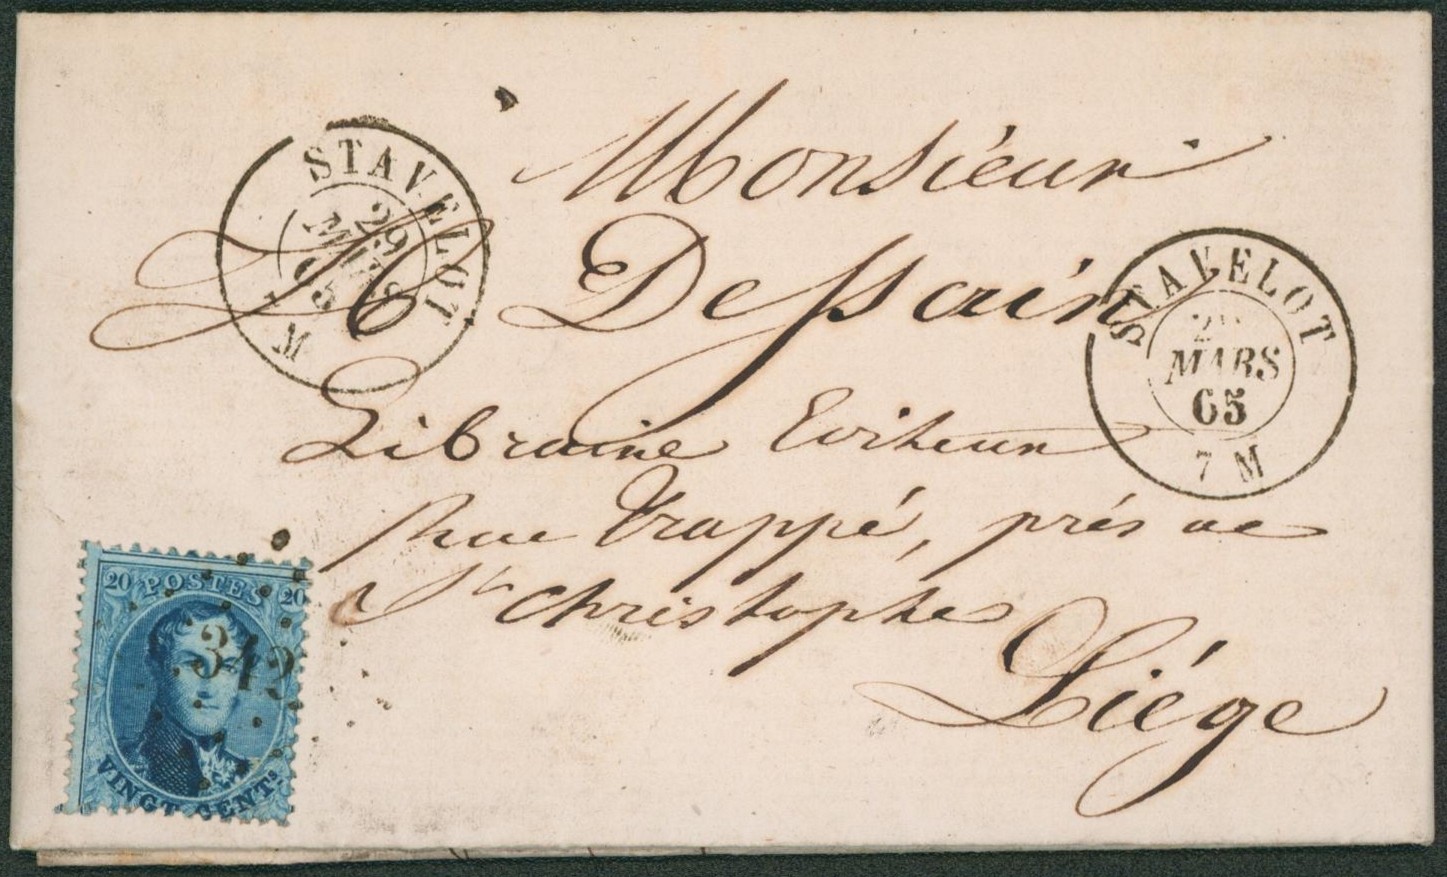 Monsieur
H Dessain
Libraire Editeur
Rue Trappé, près de
St Christophe
Liége
STAVELOT
29
MARS
65
7 M
STAVELOT
MARS
65
7 M
20 POSTES 20
342
VINGT CENTS